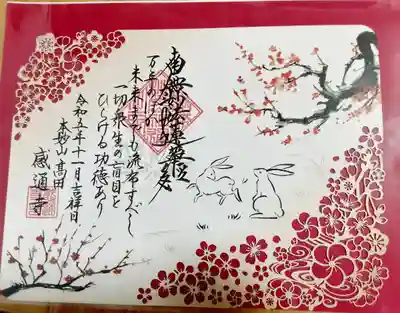 南無妙法蓮華経
万年の外
未来までも流布すべし
一切衆生の盲目を
ひらける功徳あり
令和五年十一月吉祥日
本妙山 高田
感通寺